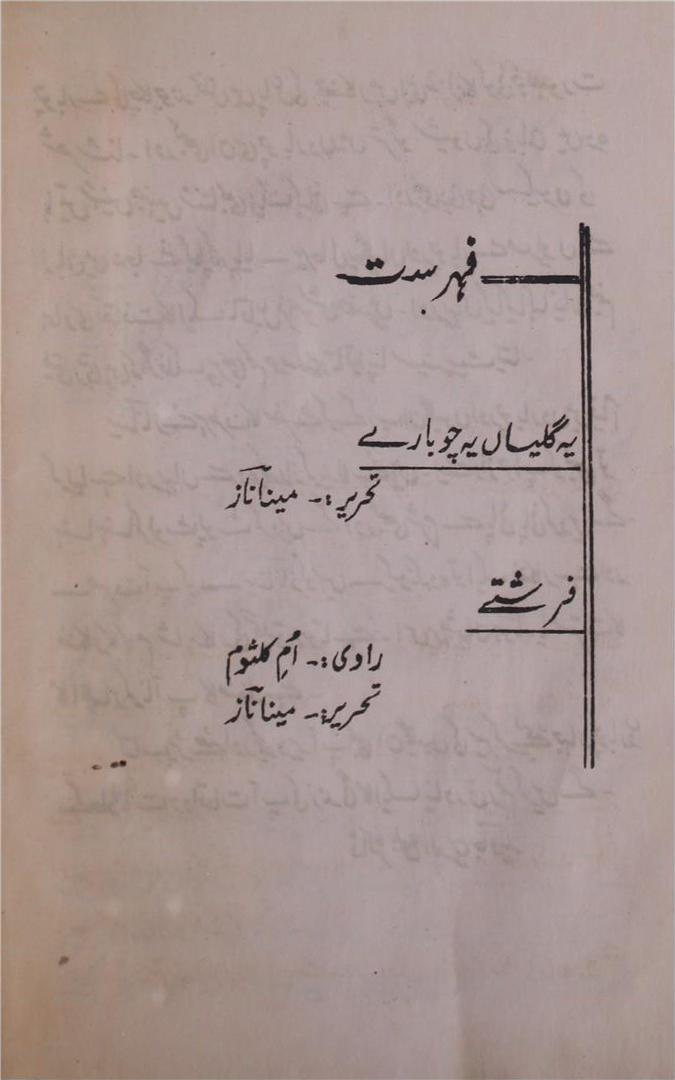 فہرست
یہ گلیاں یہ چوبارے
تحریر:۔ مینا ناز
فرشتے
راوی:۔ اُمِ کلثوم
تحریر:۔ مینا ناز